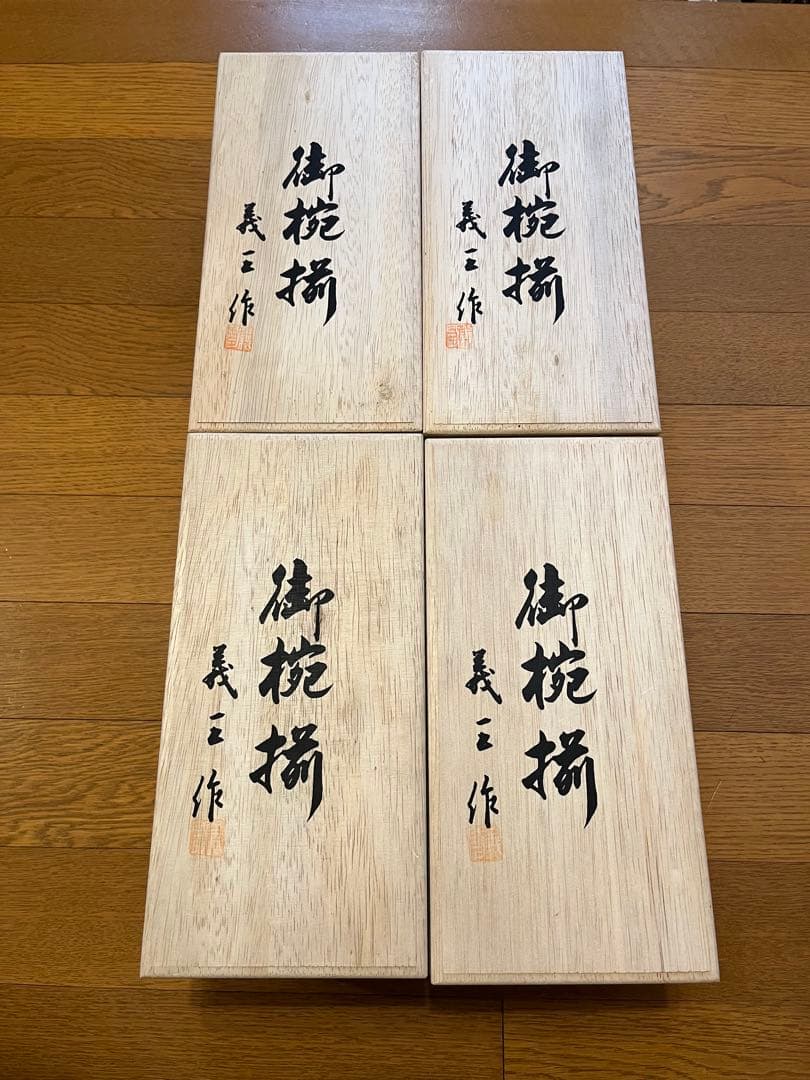 御椀揃
義 作
御椀揃
義 作
御椀揃
義 作
御椀揃
義 作